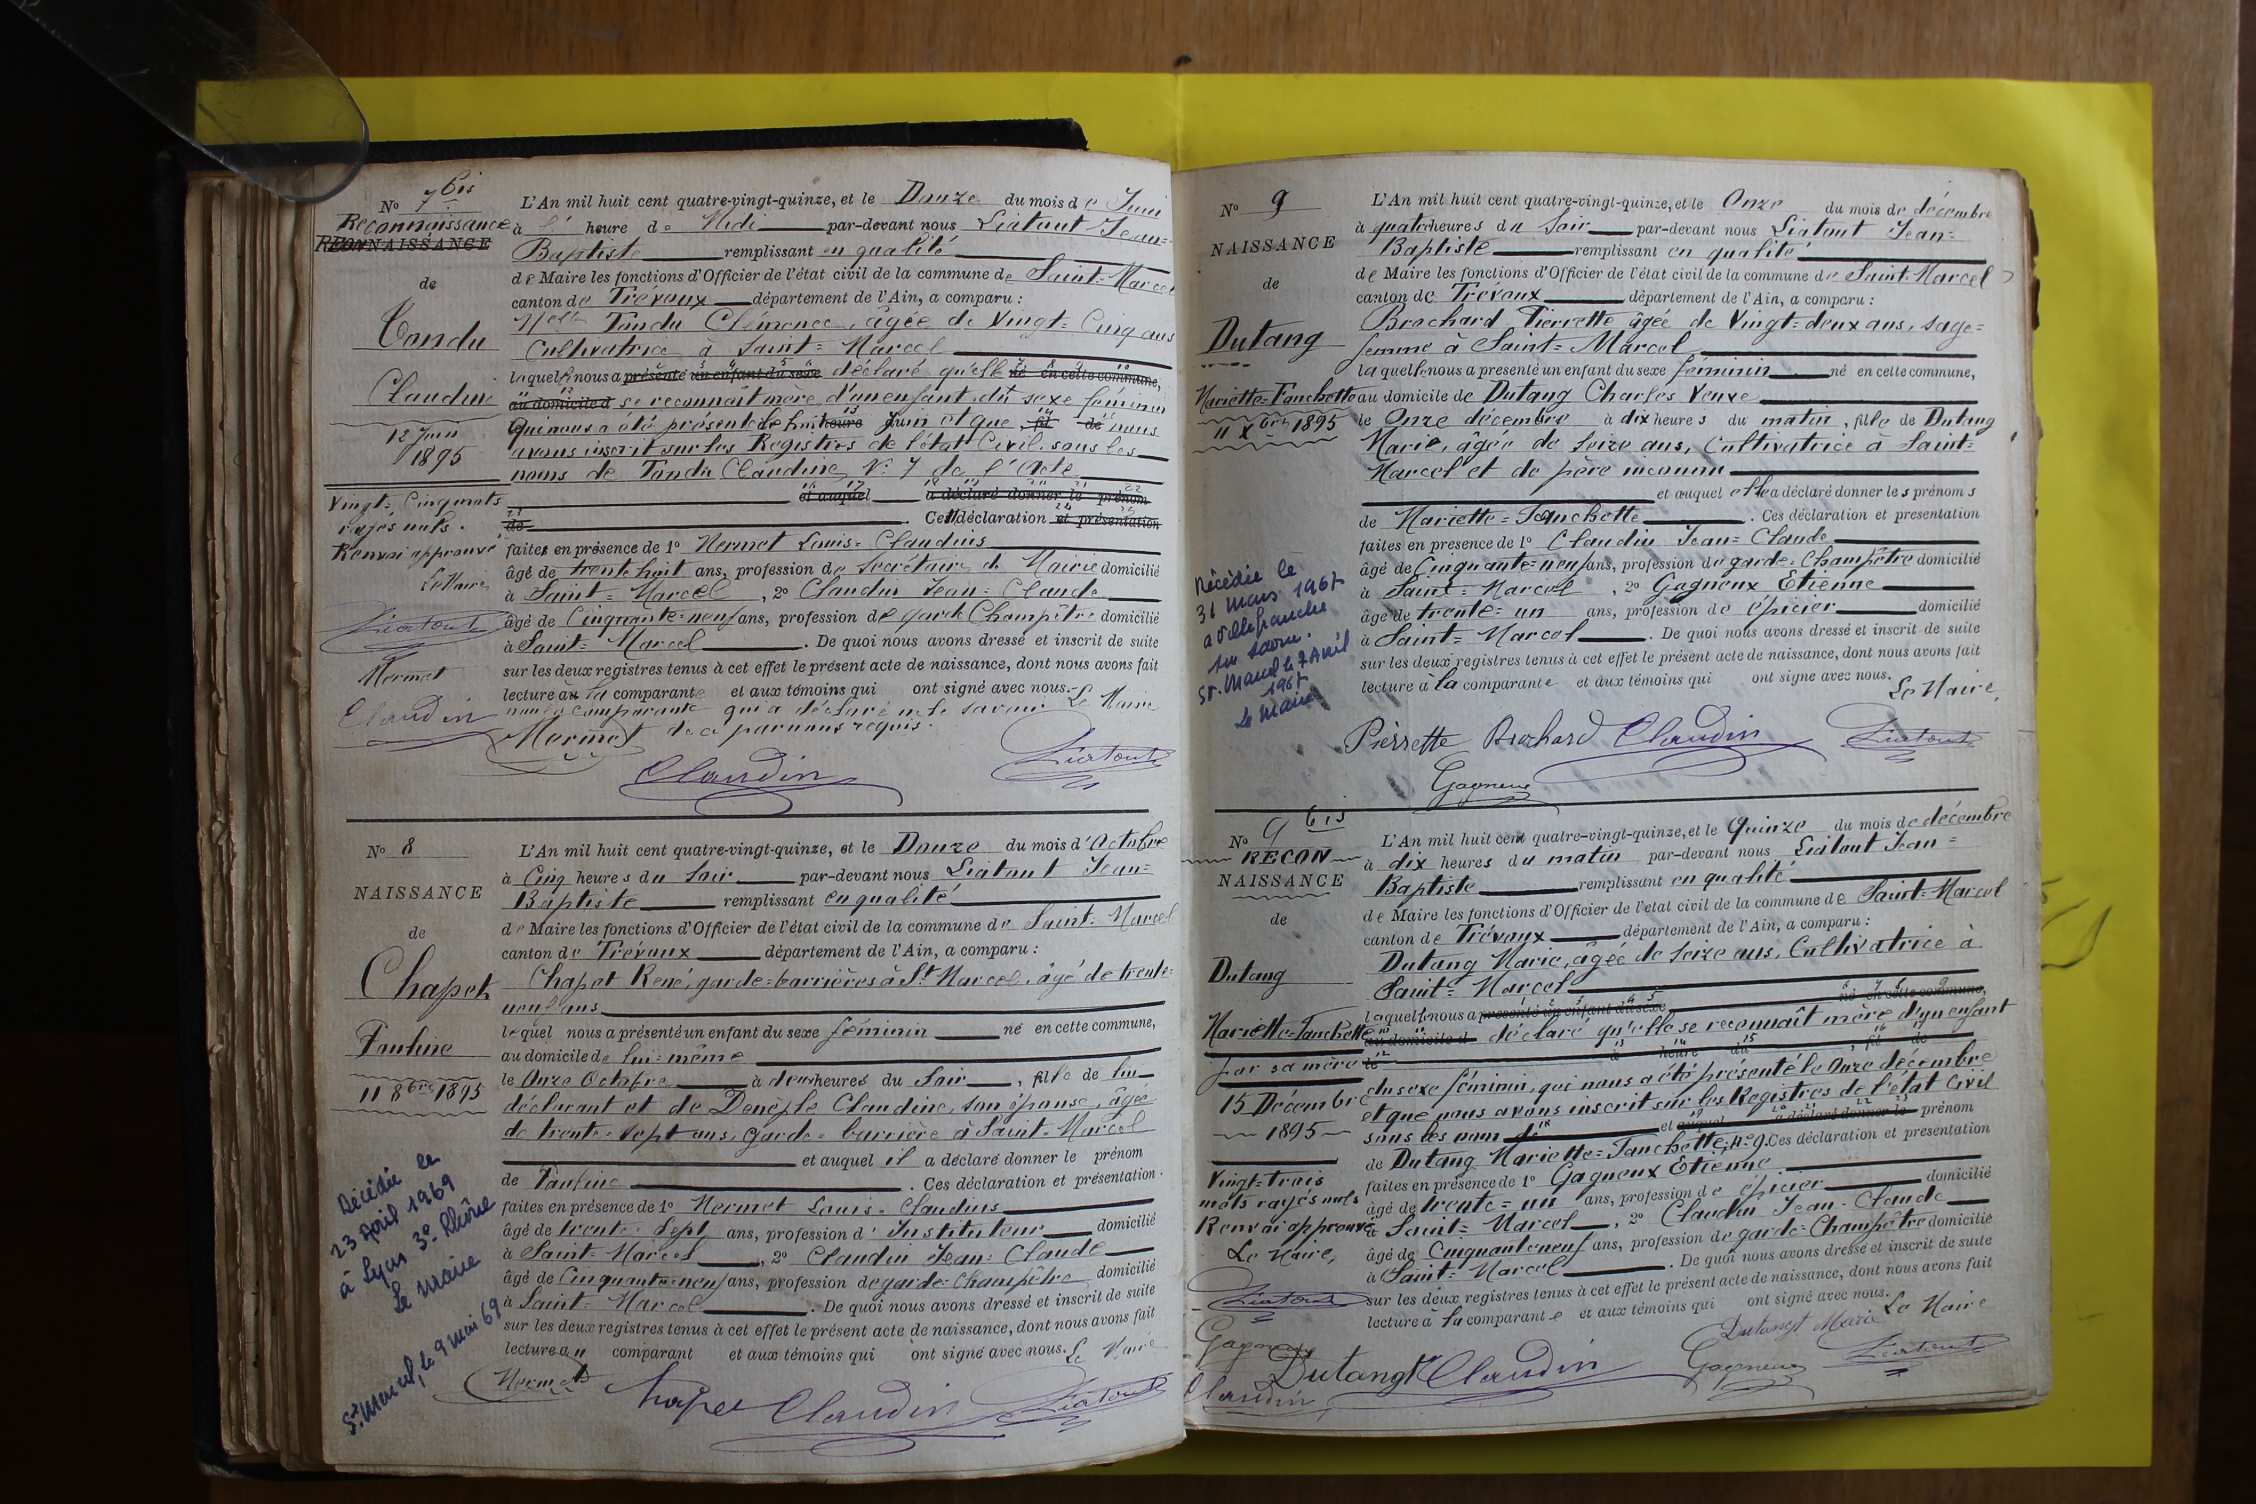 No 7 bis
Reconnaissance
RECONNAISSANCE
de
Tondu
Claudine
12 Juin
1895
Vingt-Cinq mots
rayés nuls.
Renvoi approuvé
Le Maire
Liatout
Mermet
Claudin
L'An mil huit cent quatre-vingt-quinze, et le Douze du mois de Juin
à heure de Midi par-devant nous Liatout Jean-
Baptiste remplissant en qualité
de Maire les fonctions d'Officier de l'état civil de la commune de Saint-Marcel
canton de Trévoux département de l'Ain, a comparu :
Melle Tondu Clémence, âgée de Vingt-Cinq ans
Cultivatrice à Saint-Marcel
laquelle nous a présenté un enfant du sexe déclaré qu'elle né en cette commune,
au domicile d se reconnaît mère d'un enfant du sexe féminin
qui nous a été présenté le huit heure Juin et que fil de nous
avons inscrit sur les Registres de l'état Civil sous les
noms de Tondu Claudine, N° 7 de l'Acte
et auquel a déclaré donner le prénom
de . Cette déclaration et présentation
faites en présence de 1o Mermet Louis-Claudius
âgé de trente huit ans, profession de Secrétaire de Mairie domicilié
à Saint-Marcel, 2o Claudin Jean-Claude
âgé de Cinquante-neuf ans, profession de garde Champêtre domicilié
à Saint-Marcel. De quoi nous avons dressé et inscrit de suite
sur les deux registres tenus à cet effet le présent acte de naissance, dont nous avons fait
lecture à la comparante et aux témoins qui ont signé avec nous.- Le Maire
non la comparante qui a déclaré ne le savoir
de ce par nous requis.
Mermet
Claudin
Liatout
No 8
NAISSANCE
de
Chapet
Pauline
11 8bre 1895
Décédée le
23 Avril 1969
à Lyon 3e Rhône
Le Maire
St Marcel, le 9 mai 69
L'An mil huit cent quatre-vingt-quinze, et le Douze du mois d'Octobre
à Cinq heures du Soir par-devant nous Liatout Jean-
Baptiste remplissant en qualité
de Maire les fonctions d'Officier de l'état civil de la commune de Saint-Marcel
canton de Trévoux département de l'Ain, a comparu :
Chapet René, garde-barrières à St Marcel, âgé de trente-
neuf ans
lequel nous a présenté un enfant du sexe féminin né en cette commune,
au domicile de lui-même
le Onze Octobre à deux heures du Soir, fille de lui
déclarant et de Denèple Claudine, son épouse, âgée
de trente-sept ans, garde-barrière à Saint-Marcel
et auquel il a déclaré donner le prénom
de Pauline. Ces déclaration et présentation
faites en présence de 1o Mermet Louis-Claudius
âgé de trente-sept ans, profession d'Instituteur domicilié
à Saint-Marcel, 2o Claudin Jean-Claude
âgé de Cinquante-neuf ans, profession de garde-Champêtre domicilié
à Saint-Marcel. De quoi nous avons dressé et inscrit de suite
sur les deux registres tenus à cet effet le présent acte de naissance, dont nous avons fait
lecture au comparant et aux témoins qui ont signé avec nous. Le Maire
Mermet Chapet Claudin Liatout
No 9
NAISSANCE
de
Dutang
Mariette-Fanchette
11 Xbre 1895
Décédée le
31 mars 1967
à Villefranche
sur Saône.
St. Marcel le 7 Avril
1967
Le Maire
L'An mil huit cent quatre-vingt-quinze, et le Onze du mois de décembre
à quatre heures du Soir par-devant nous Liatout Jean-
Baptiste remplissant en qualité
de Maire les fonctions d'Officier de l'état civil de la commune de Saint-Marcel
canton de Trévoux département de l'Ain, a comparu :
Brochard Pierrette âgée de Vingt-deux ans, sage-
femme à Saint-Marcel
laquelle nous a présenté un enfant du sexe féminin né en cette commune,
au domicile de Dutang Charles Veuve
le Onze décembre à dix heures du matin, fille de Dutang
Marie, âgée de seize ans, Cultivatrice à Saint-
Marcel et de père inconnu
et auquel elle a déclaré donner les prénoms
de Mariette-Fanchette. Ces déclaration et présentation
faites en présence de 1o Claudin Jean-Claude
âgé de Cinquante-neuf ans, profession de garde-Champêtre domicilié
à Saint-Marcel, 2o Gagneux Etienne
âgé de trente-un ans, profession de épicier domicilié
à Saint-Marcel. De quoi nous avons dressé et inscrit de suite
sur les deux registres tenus à cet effet le présent acte de naissance, dont nous avons fait
lecture à la comparante et aux témoins qui ont signé avec nous.
Le Maire,
Pierrette Brochard Claudin Liatout
Gagneux
No 9 bis
RECON
NAISSANCE
de
Dutang
Mariette-Fanchette
par sa mère
15 Décembre
1895
Vingt-trois
mots rayés nuls
Renvoi approuvé
Le Maire,
Liatout
Gagneux
Claudin
L'An mil huit cent quatre-vingt-quinze, et le Quinze du mois de décembre
à dix heures du matin par-devant nous Liatout Jean-
Baptiste remplissant en qualité
de Maire les fonctions d'Officier de l'état civil de la commune de Saint-Marcel
canton de Trévoux département de l'Ain, a comparu :
Dutang Marie, âgée de seize ans, Cultivatrice à
Saint-Marcel
laquelle nous a présenté un enfant du sexe né en cette commune,
au domicile d déclaré qu'elle se reconnaît mère d'un enfant
le à heure du, fil de
du sexe féminin, qui nous a été présenté le Onze décembre
et que nous avons inscrit sur les Registres de l'état Civil
sous les nom de et auquel a déclaré donner le prénom
de Dutang Mariette-Fanchette, No 9. Ces déclaration et présentation
faites en présence de 1o Gagneux Etienne
âgé de trente-un ans, profession de épicier domicilié
à Saint-Marcel, 2o Claudin Jean-Claude
âgé de Cinquante neuf ans, profession de garde-Champêtre domicilié
à Saint-Marcel. De quoi nous avons dressé et inscrit de suite
sur les deux registres tenus à cet effet le présent acte de naissance, dont nous avons fait
lecture à la comparante et aux témoins qui ont signé avec nous.
Le Maire
Dutangt Marie
Dutangt Claudin Gagneux Liatout